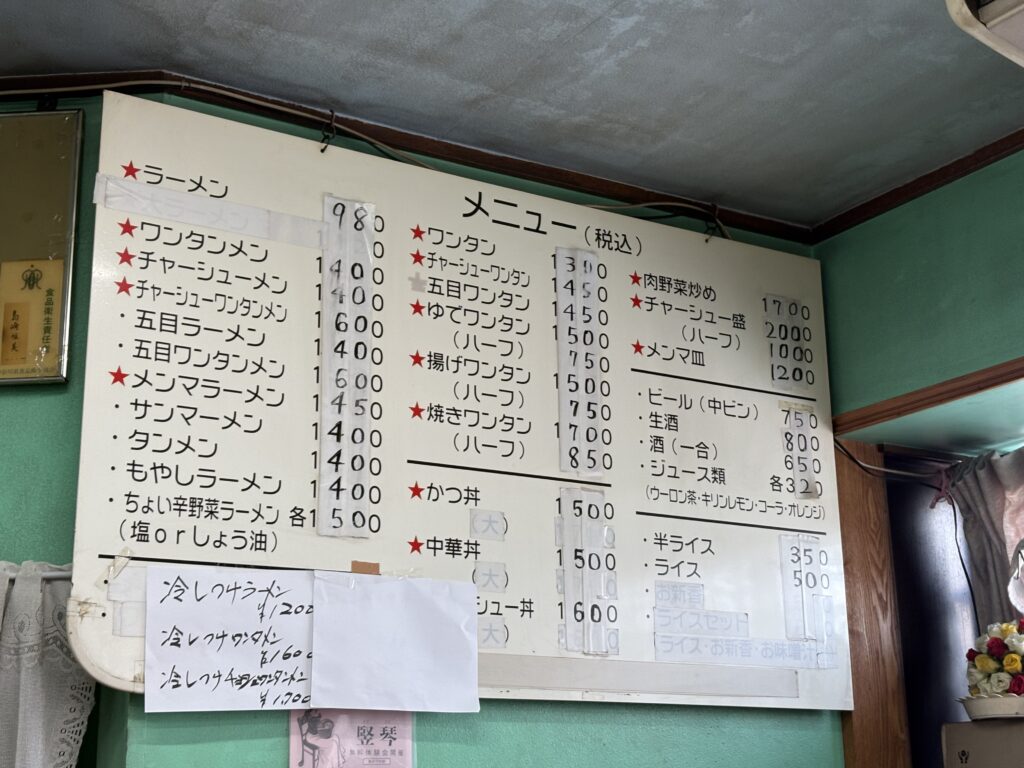 メニュー(税込)
★ラーメン 980
★ワンタンメン 1400
★チャーシューメン 1400
★チャーシューワンタンメン 1600
・五目ラーメン 1400
・五目ワンタンメン 1600
★メンマラーメン 1450
・サンマーメン 1400
・タンメン 1400
・もやしラーメン 1400
・ちょい辛野菜ラーメン 各1500
(塩orしょう油)
冷しつけラーメン
¥1200
冷しつけワンタメン
¥1600
冷しつけチャーシューワンタンメン
¥1,700
★ワンタン 1300
★チャーシューワンタン 1450
★五目ワンタン 1450
★ゆでワンタン 1500
(ハーフ) 750
★揚げワンタン 1500
(ハーフ) 750
★焼きワンタン 1700
(ハーフ) 850
★かつ丼 1500
(大)
★中華丼 1500
(大)
シュー丼 1600
(大)
★肉野菜炒め 1700
★チャーシュー盛 2000
(ハーフ) 1000
★メンマ皿 1200
・ビール(中ビン) 750
・生酒 800
・酒(一合) 650
・ジュース類 各320
(ウーロン茶・キリンレモン・コーラ・オレンジ)
・半ライス 350
・ライス 500
・お新香
・ライスセット
(ライス・お新香・お味噌汁)
食品衛生責任
竪琴
無料体験会開催